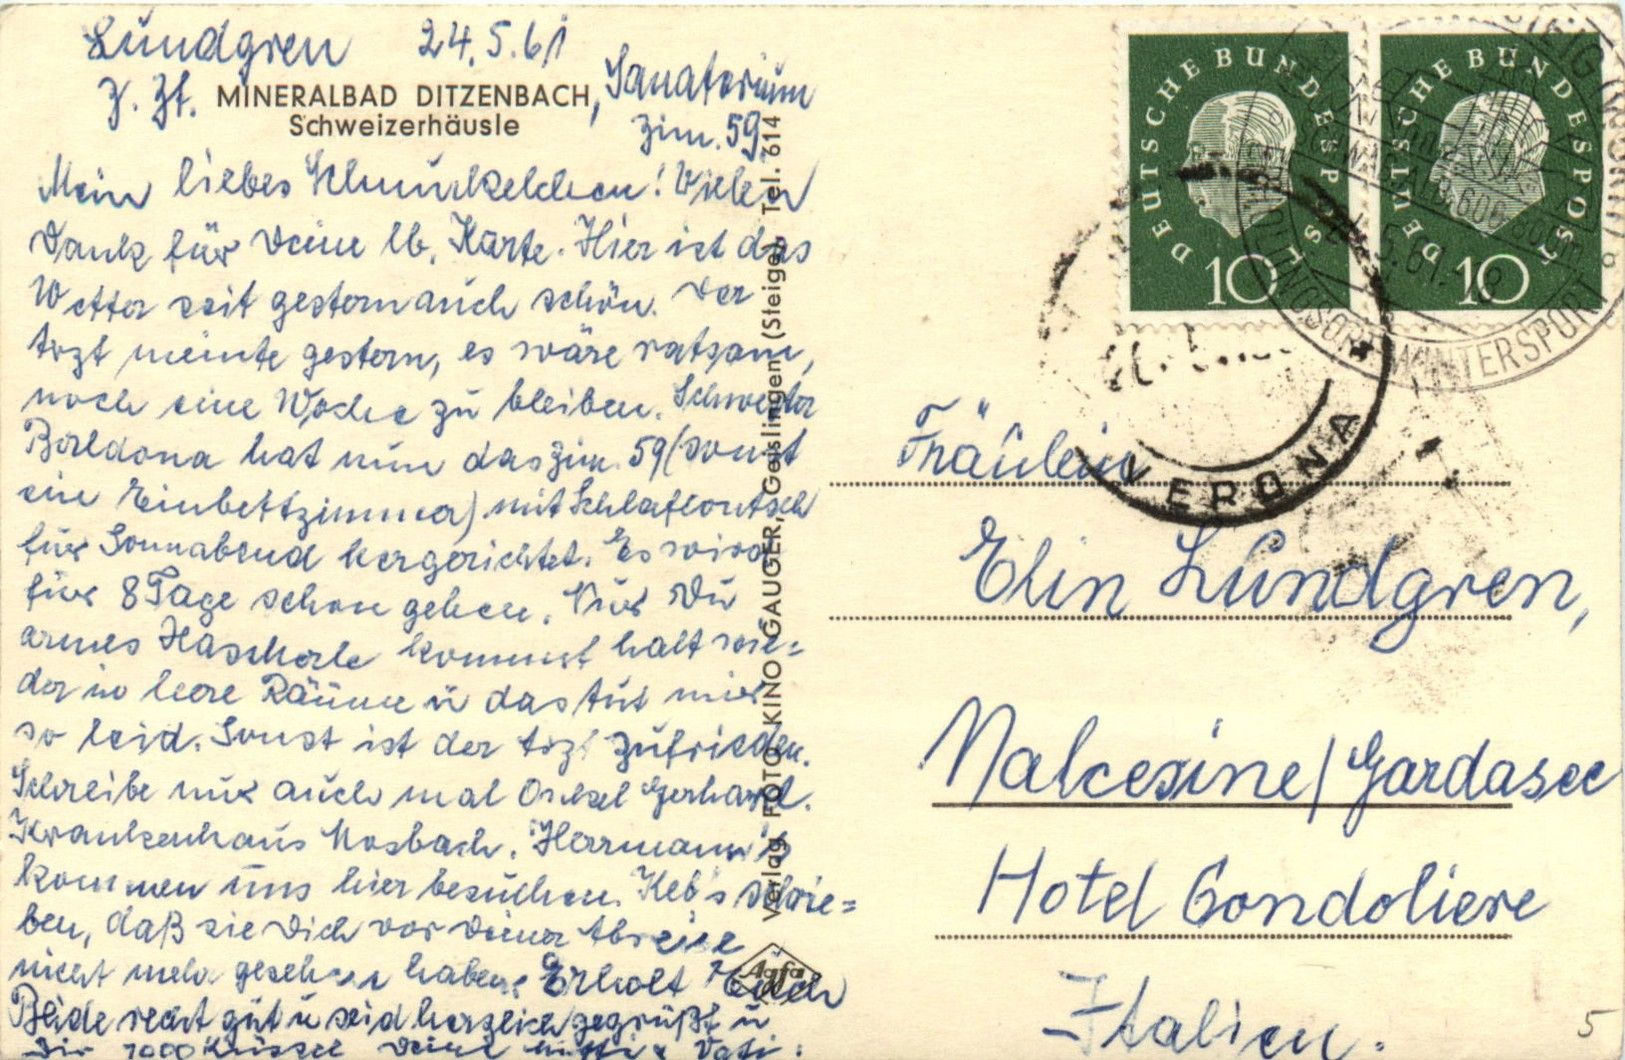 Lundgren 24.5.61
z. Zt. MINERALBAD DITZENBACH, Sanatorium
Schweizerhäusle
Zim. 59
Mein liebes Schnuckelchen! Vielen
Dank für Deine lb. Karte. Hier ist das
Wetter seit gestern auch schön. Der
Arzt meinte gestern, es wäre ratsam,
noch eine Woche zu bleiben. Schwester
hat nun das Zim. 59 (sonst
ein Einbettzimmer) mit Schlafcoutsch
für Sonnabend hergerichtet. Es wird
für 8 Tage schon gehen. Nur Du
armes Hascherle kommst halt wie=
der in leere Räume u das tut mir
so leid. Sonst ist der Arzt zufrieden.
Schreibe nur auch mal Onkel Gerhard.
Krankenhaus Mosbach. Herrmann's
kommen uns hier besuchen. Keb's schrie=
ben, daß sie Dich vor Deiner Abreise
nicht mehr gesehen haben. Erholt Euch
Beide recht gut u seid herzlich gegrüßt u
Dir 1000 Küsse Deine Mutti u Vati.
Verlag FOTO-KINO GAUGER, Geislingen (Steige), Tel. 614
Agfa
DEUTSCHE BUNDESPOST
10
DEUTSCHE BUNDESPOST
10
ERHOLUNGSORT WINTERSPORT
VERONA
Fräulein
Elin Lundgren,
Malcesine/Gardasee
Hotel Gondoliere
Italien.
5